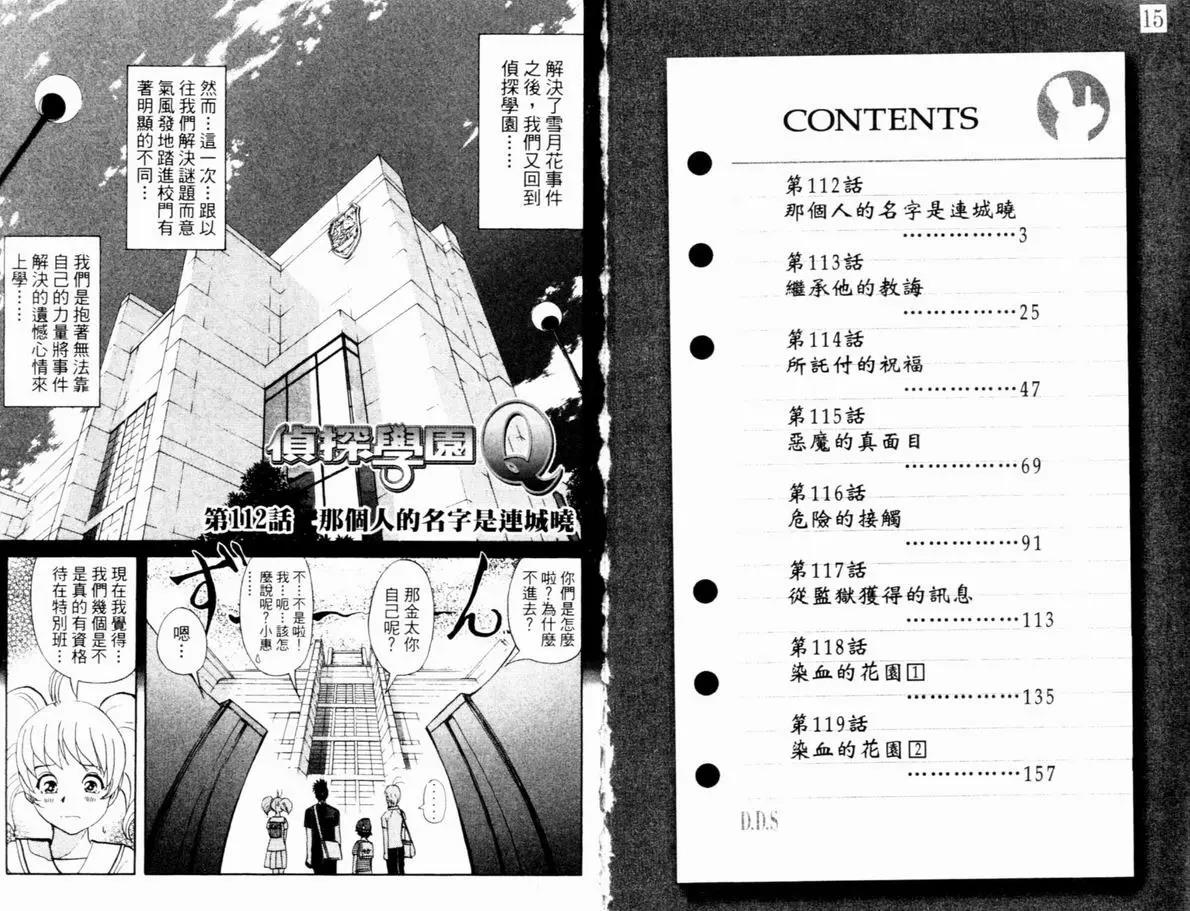 15
CONTENTS
第112話
那個人的名字是連城曉
………………3
第113話
繼承他的教誨
………………25
第114話
所託付的祝福
………………47
第115話
惡魔的真面目
………………69
第116話
危險的接觸
………………91
第117話
從監獄獲得的訊息
………………113
第118話
染血的花園1
………………135
第119話
染血的花園2
………………157
D.D.S
解決了雪月花事件
之後，我們又回到
偵探學園……
然而…這一次…跟以
往我們解決謎題而意
氣風發地踏進校門有
著明顯的不同…
我們是抱著無法靠
自己的力量將事件
解決的遺憾心情來
上學……
偵探學園Q
第112話 那個人的名字是連城曉
你們是怎麼
啦？為什麼
不進去？
ずーん
那金太你
自己呢？
不…不是啦！
我…呃…該怎
麼說呢？小惠
……
嗯…
……
現在我覺得…
我們幾個是不
是真的有資格
待在特別班…